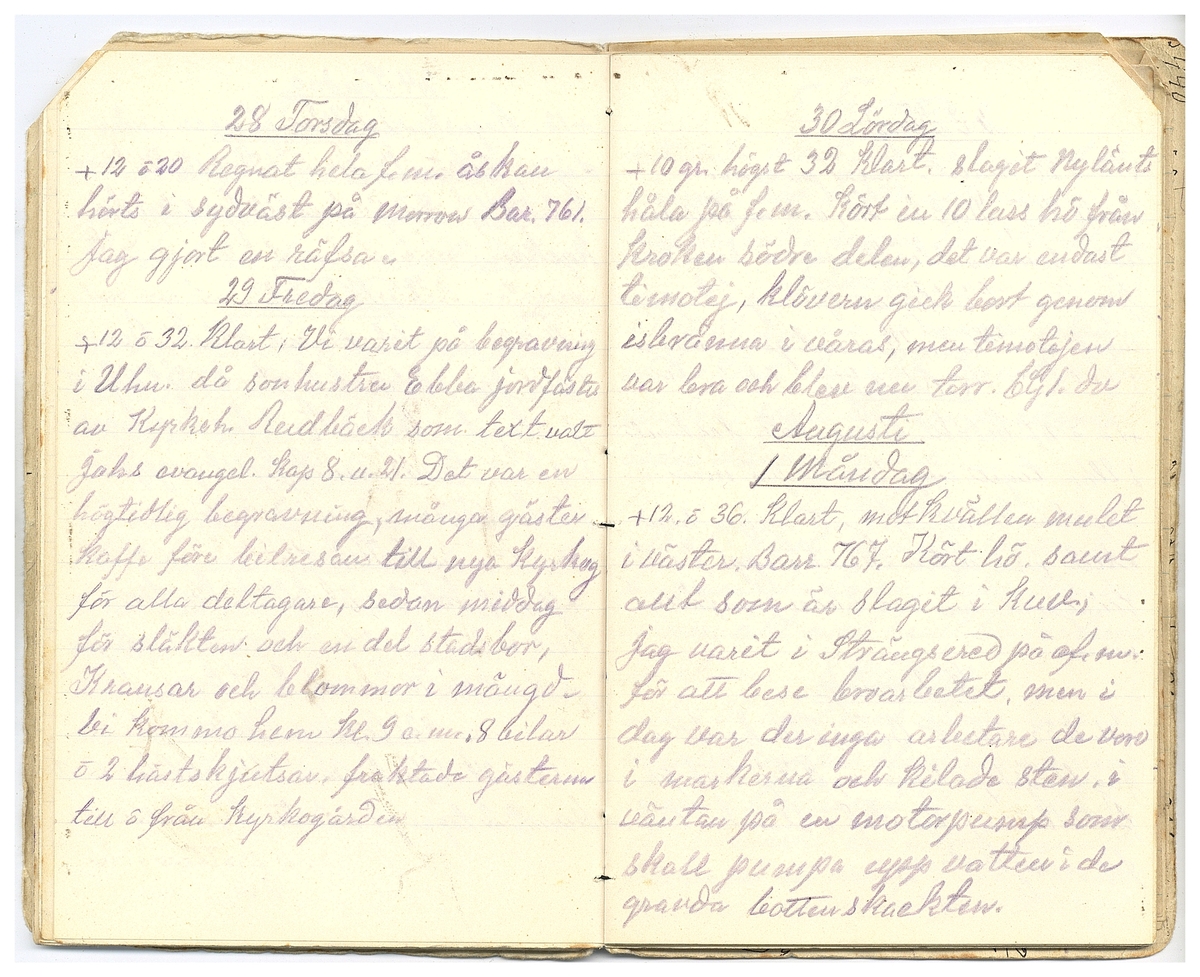 28 Torsdag
+12 ö 20 Regnat hela f.m. åskan
hörts i sydväst på morron Bar. 761.
Jag gjort en räfsa
29 Fredag
+12 ö 32. Klart. Vi varit på begravning
i Uhn. då sonhustru Ebba jordfästs
av Kyrkoh. Redbäck som text valt
Johs evangel. Kap 8. v. 21. Det var en
högtidlig begravning, många gäster
kaffe före bilresan till nya Kyrkog
för alla deltagare, sedan middag
för släkten och en del stadsbor,
Kransar och blommor i mängd.
Vi kommo hem kl. 9 e.m. 8 bilar
ö 2 hästskjutsar. fraktade gästerna
till ö från Kyrkogården
30 Lördag
+10 gr. högst 32 Klart. slaget Nylänts
håla på f.m. Kört in 10 lass hö från
kroken södre delen, det var endast
timotej, klövern gick bort genom
isbränna i våras, men timotejen
var bra och blev nu torr.
Augusti
1 Måndag
+12. ö 36. Klart, mot kvällen mulet
i väster. Barr. 767. Kört hö. samt
allt som är slaget i Kuv;
jag varit i Strängsered på ef.m.
för att bese broarbetet, men i
dag var der inga arbetare de voro
i markerna och kilade sten. i
väntan på en motorpump som
skall pumpa upp vatten i de
gravda bottenskackten.